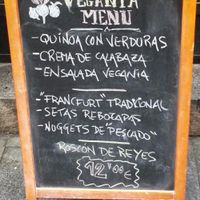 VEGANIA
MENÚ
- QUINOA CON VERDURAS
- CREMA DE CALABAZA
- ENSALADA VEGANIA
- "FRANCFURT" TRADICIONAL
- SETAS REBOZADAS
- NUGGETS DE "PESCADO"
ROSCÓN DE REYES
12'00 €